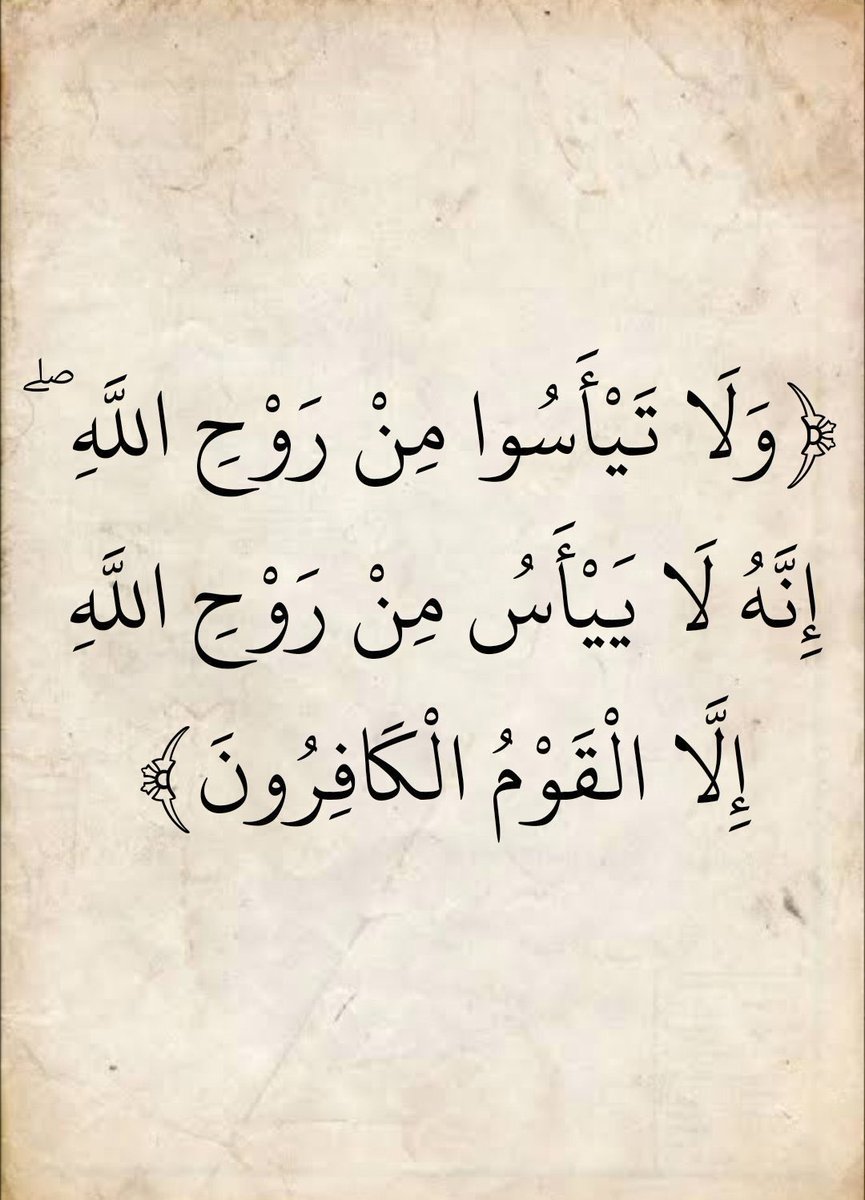 ﴿وَلَا تَيْأَسُوا مِنْ رَوْحِ اللَّهِ ۖ
إِنَّهُ لَا يَيْأَسُ مِنْ رَوْحِ اللَّهِ
إِلَّا الْقَوْمُ الْكَافِرُونَ﴾